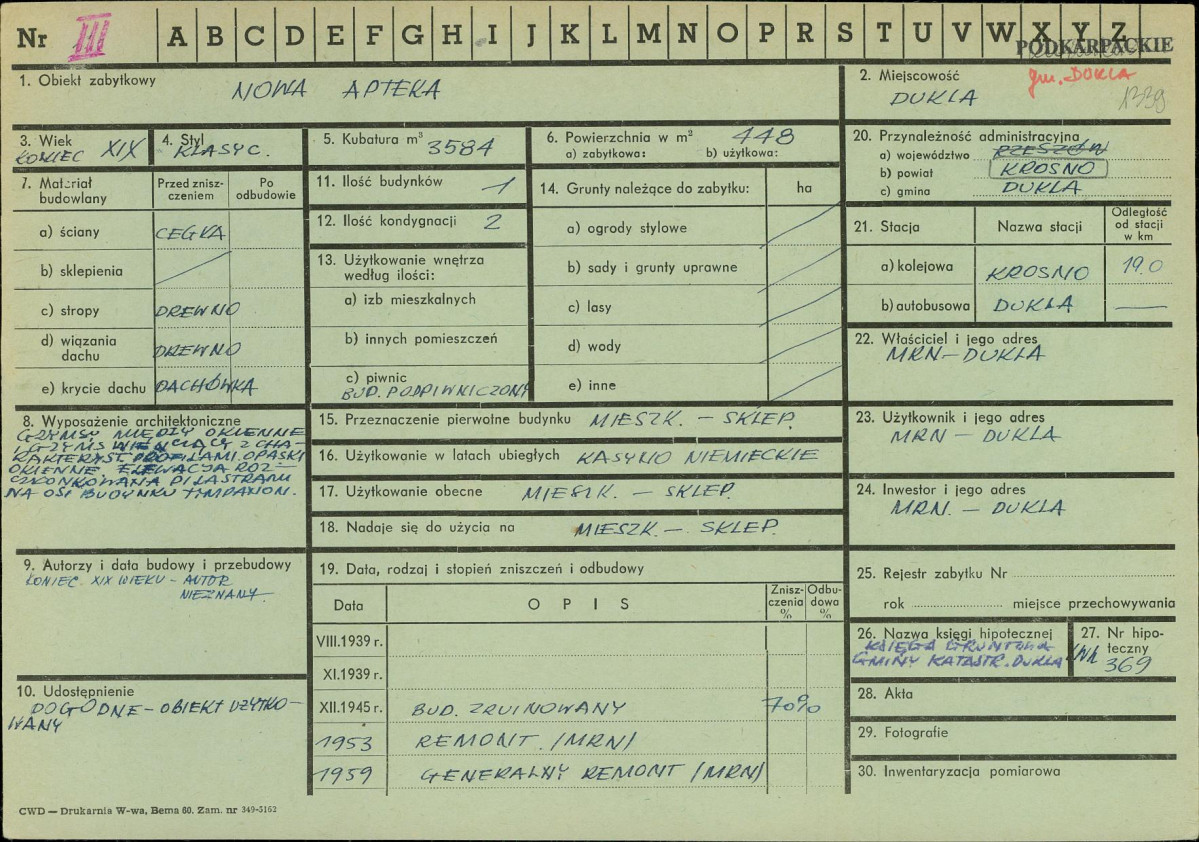 Nr III A B C D E F G H I J K L M N O P R S T U V W X Y Z
PODKARPACKIE
1. Obiekt zabytkowy NOWA APTEKA
2. Miejscowość gm. DUKLA
DUKLA 1339
3. Wiek KONIEC XIX
4. Styl KLASYC.
5. Kubatura m³ 3584
6. Powierzchnia w m² 448
a) zabytkowa: b) użytkowa:
7. Materiał budowlany
Przed zniszczeniem
Po odbudowie
a) ściany CEGŁA
b) sklepienia
c) stropy DREWNO
d) wiązania dachu DREWNO
e) krycie dachu DACHÓWKA
8. Wyposażenie architektoniczne
GZYMSY MIĘDZY OKIENNE
, GZYMS WIEŃCZĄCY Z CHA-
RAKTERYST. PROFILAMI. OPASKI
OKIENNE ELEWACJA ROZ-
CZŁONKOWANA PILASTRAMI
NA OSI BUDYNKU TIMPANON.
9. Autorzy i data budowy i przebudowy
KONIEC XIX WIEKU - AUTOR
NIEZNANY
10. Udostępnienie
DOGODNE - OBIEKT UŻYTKO-
WANY
11. Ilość budynków 1
12. Ilość kondygnacji 2
13. Użytkowanie wnętrza
według ilości:
a) izb mieszkalnych
b) innych pomieszczeń
c) piwnic
BUD. PODPIWNICZONY
14. Grunty należące do zabytku: ha
a) ogrody stylowe
b) sady i grunty uprawne
c) lasy
d) wody
e) inne
15. Przeznaczenie pierwotne budynku MIESZK. - SKLEP.
16. Użytkowanie w latach ubiegłych KASYNO NIEMIECKIE
17. Użytkowanie obecne MIESZK. - SKLEP.
18. Nadaje się do użycia na MIESZK. - SKLEP.
19. Data, rodzaj i stopień zniszczeń i odbudowy
Data OPIS Zniszczenia % Odbudowa %
VIII.1939 r.
XI.1939 r.
XII.1945 r. BUD. ZRUINOWANY 70%
1953 REMONT /MRN/
1959 GENERALNY REMONT /MRN/
20. Przynależność administracyjna
a) województwo RZESZÓW
b) powiat KROSNO
c) gmina DUKLA
21. Stacja Nazwa stacji Odległość od stacji w km
a) kolejowa KROSNO 19.0
b) autobusowa DUKLA —
22. Właściciel i jego adres
MRN - DUKLA
23. Użytkownik i jego adres
MRN - DUKLA
24. Inwestor i jego adres
MRN. - DUKLA
25. Rejestr zabytku Nr
rok miejsce przechowywania
26. Nazwa księgi hipotecznej
KSIĘGA GRUNTOWA
GMINY KATASTR. DUKLA
27. Nr hipoteczny
369
28. Akta
29. Fotografie
30. Inwentaryzacja pomiarowa
CWD — Drukarnia W-wa, Bema 60. Zam. nr 349-5162